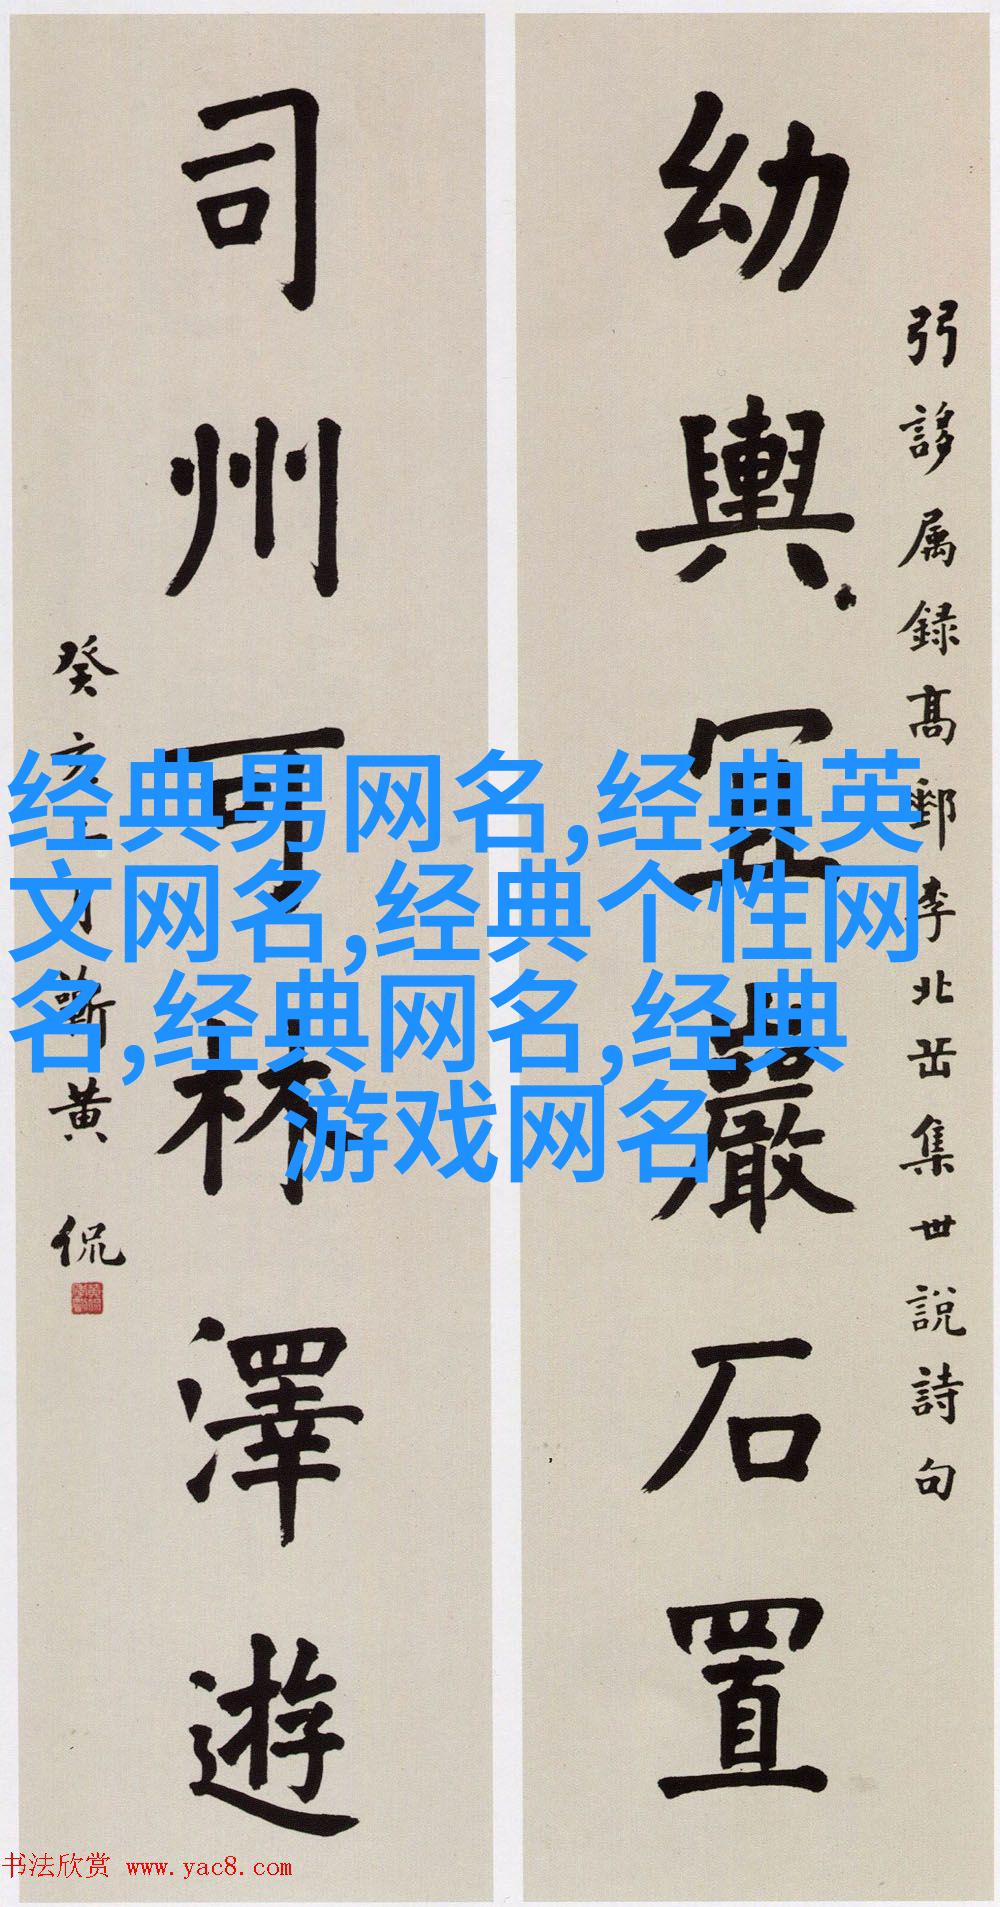 弜誃属録高郵李北岳集世說詩句
幼輿宜嚴石置
司州可林澤遊
癸亥
蘄黄侃
经典男网名,经典英
文网名,经典个性网
名,经典网名,经典
游戏网名
书法欣赏 www.yac8.com